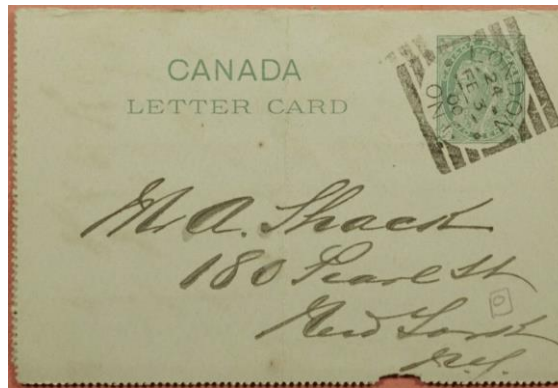 CANADA
LETTER CARD
LONDON
24
FE 3
00
ONT
Mr A. Shack
180 Pearl St
New York
N.Y.